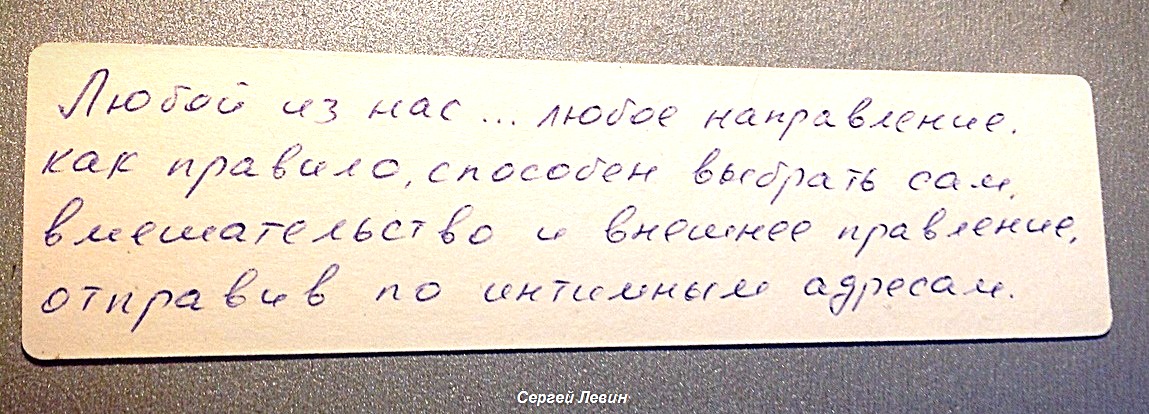 Любой из нас... любое направление.
как правило, способен выбрать сам,
вмешательство и внешнее правление,
отправив по интимным адресам.
Сергей Левин